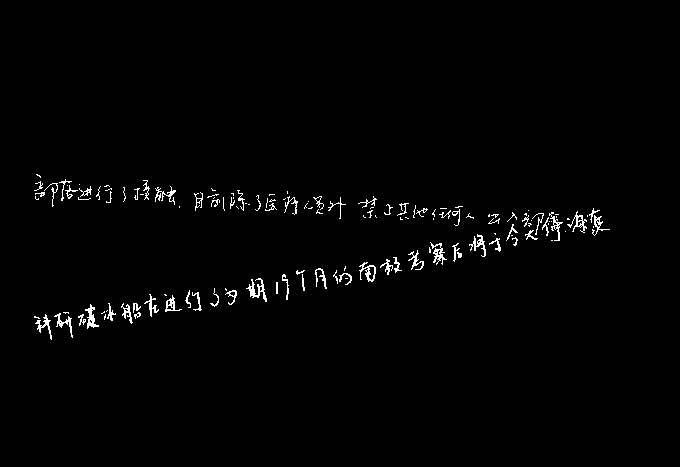 部落进行了接触,目前除了医疗人员外 禁止其他任何人 出入部落
科研破冰船在进行了为期19个月的南极考察后将于今天停